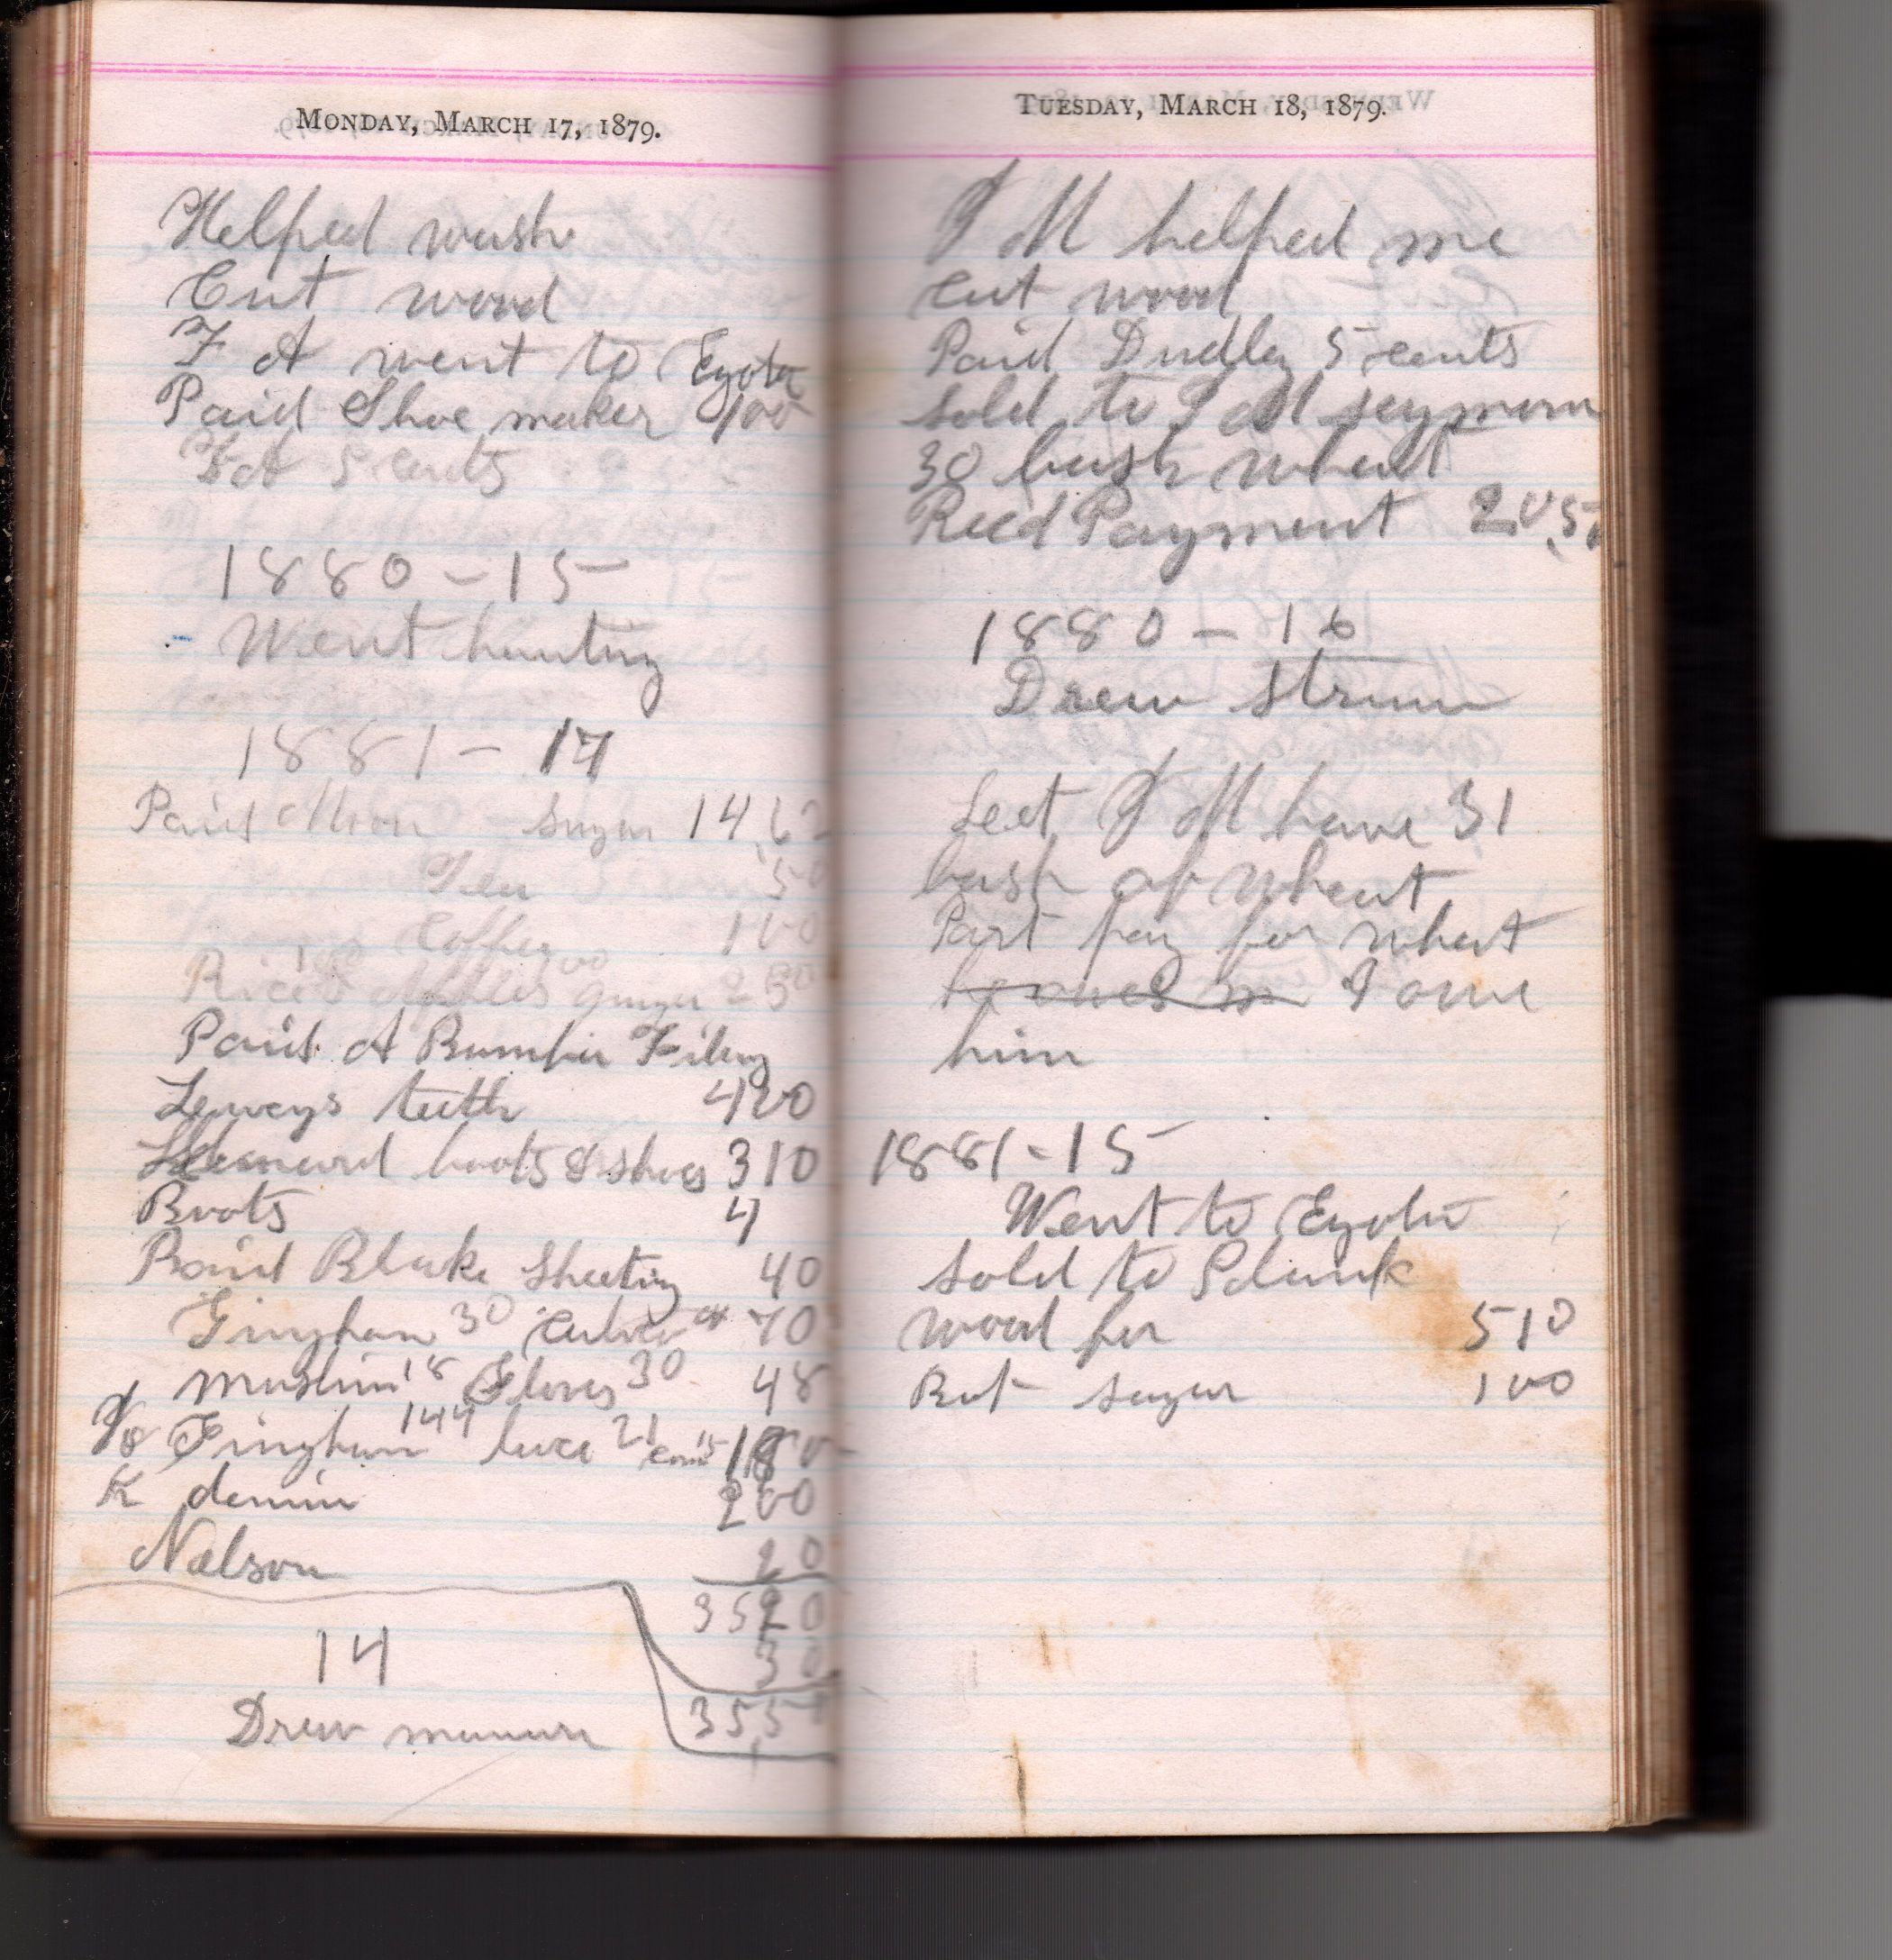 MONDAY, MARCH 17, 1879.
Helped wash
Cut wood
F A went to Eyota
Paid Shoe maker 100
F A 5 cents
1880 - 15
Went hunting
1881 - 17
Paid sugar 14,62
Tea 50
Coffey 100
Rice 100 Apples 100 ginger 250
Paid A Bumper Filing
Leweys teeth 400
Leonard boots & shoes 310
Boots 4
Paid Blake Sheeting 40
Gingham 30 Calico 40 70
muslin 18 Gloves 30 48
Gingham 144 lace 21 15 180
K denim 200
Nelson 20
3520
30
355
14
Drew manure
TUESDAY, MARCH 18, 1879.
J M helped me
cut wood
Paid Dudley 5 cents
sold to J M seymour
30 bush wheat
Recd Payment 20,57
1880 - 16
Drew straw
Leet J M have 31
bush of wheat
Part pay for what
he owes m I owe
him
1881 - 15
Went to Eyota
sold to Plank
wood for 510
Bot sugar 100